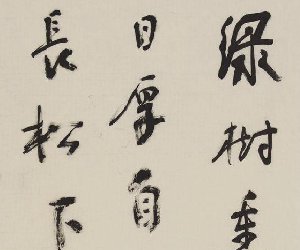 綠樹重
日厚自
長松下